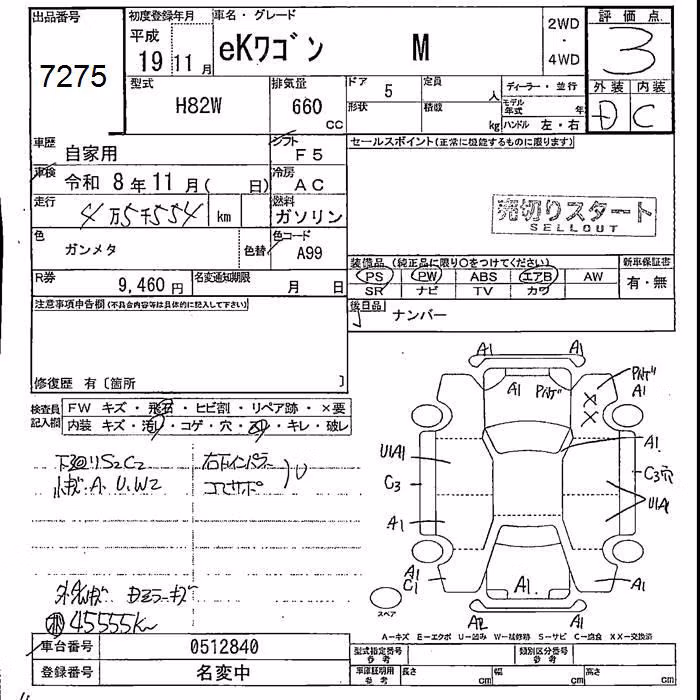 出品番号
7275
初度登録年月
平成
19 11月
車名・グレード
eKワゴン M
2WD
・
4WD
評価点
3
外装 内装
D C
型式
H82W
排気量
660
CC
ドア 5
定員 人
形状
積載 kg
ディーラー・並行
モデル年式 年
ハンドル 左・右
車歴
自家用
シフト
F5
セールスポイント(正常に機能するものに限ります)
車検
令和 8年11月( 日)
冷房
AC
売切りスタート
SELLOUT
走行
4万5千554 km
燃料
ガソリン
色
ガンメタ
色替
色コード
A99
装備品(純正品に限り○をつけてください)
新車保証書
PS PW ABS エアB AW
SR ナビ TV カワ
有・無
R券
9,460円
名変通知期限
月 日
後日品
ナンバー
注意事項申告欄(不具合内容等は具体的に記入して下さい)
修復歴 有〔箇所 〕
検査員
記入欄
FW キズ・飛石・ヒビ割・リペア跡・×要
内装 キズ・汚れ・コゲ・穴・スレ・キレ・破レ
下廻りS2C2
小キズ.A.U.W2
45555K
A1 A1
A1
A1
XX
A1
U1A1
C3
A1
A1
C1
A1.
C3穴
U1A1
A1
A2 A1
スペア
A-キズ E-エクボ U-凹み W-補修跡 S-サビ C-腐食 XX-交換済
車台番号
0512840
登録番号
名変中
型式指定番号
参考
類別区分番号
参考
車庫証明用
参考
長さ cm
幅 cm
高さ cm